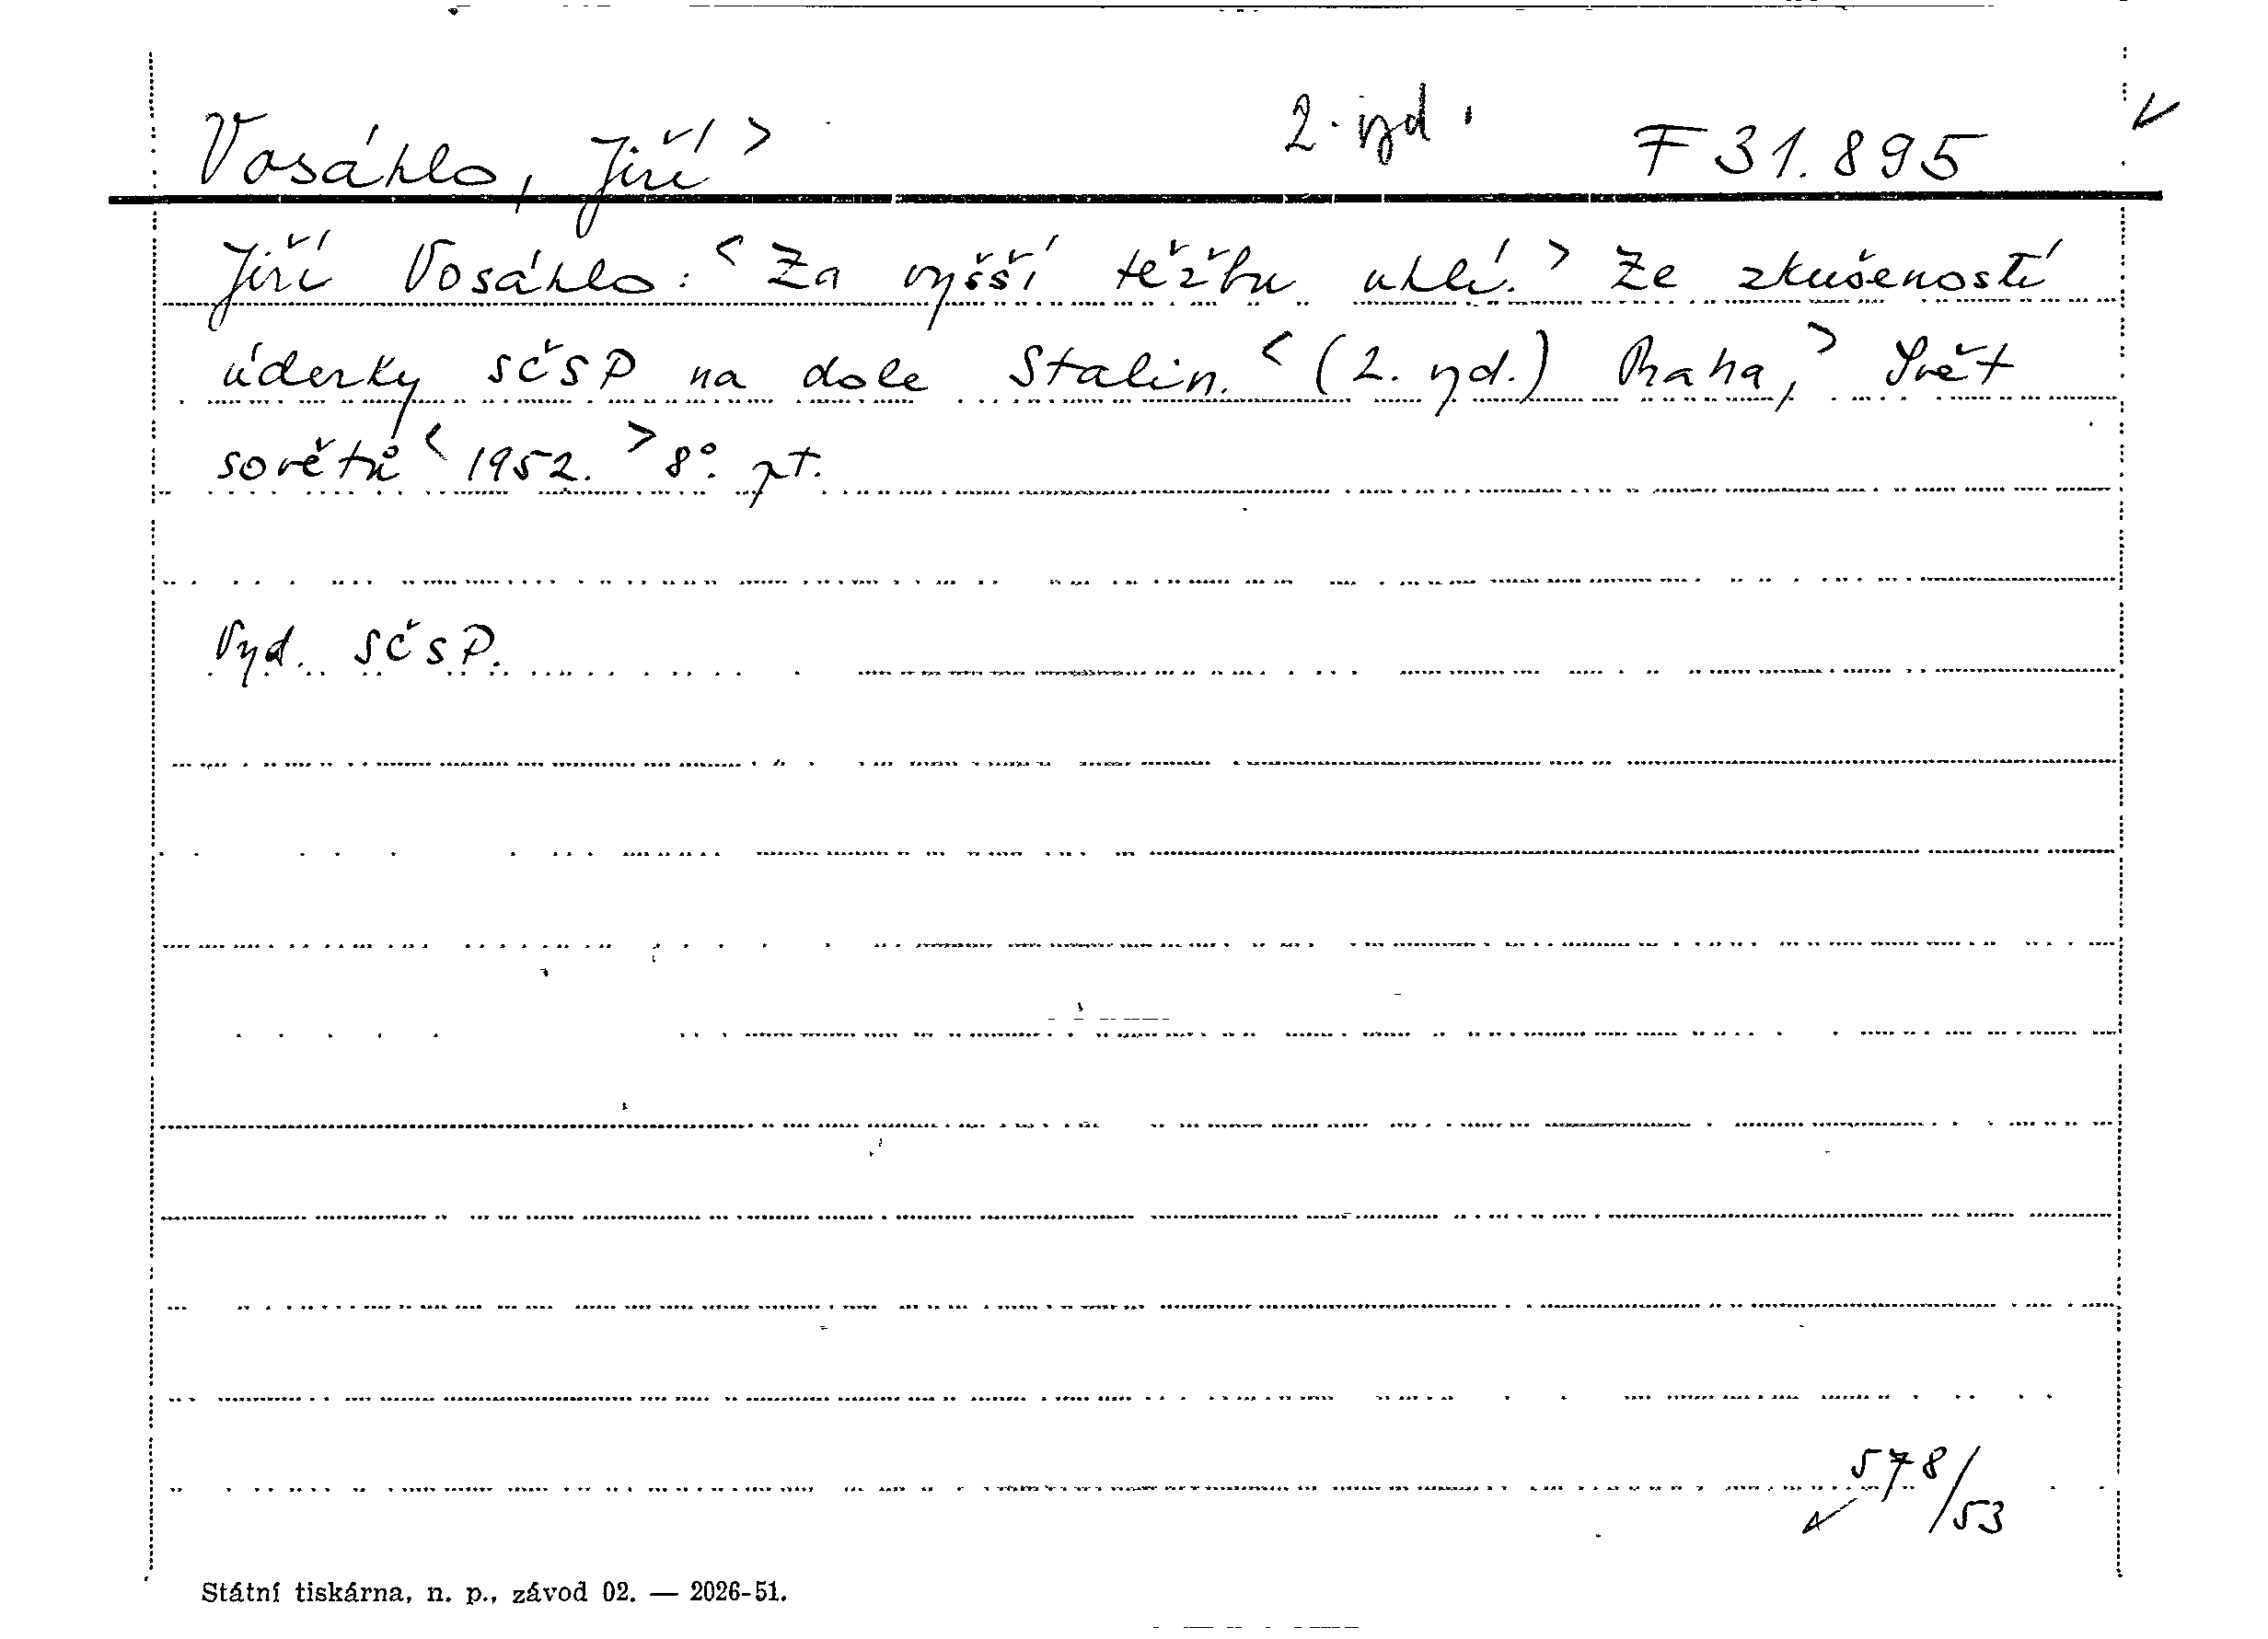 Vosáhlo, Jiří > 2. vyd. F 31.895
Jiří Vosáhlo: < Za vyšší těžbu uhlí. > Ze zkušeností
úderky SČSP na dole Stalin. < (2. vyd.) Praha, > Svět
sovětů < 1952. > 8°. pt.
Vyd. SČSP.
578/53
Státní tiskárna, n. p., závod 02. — 2026-51.